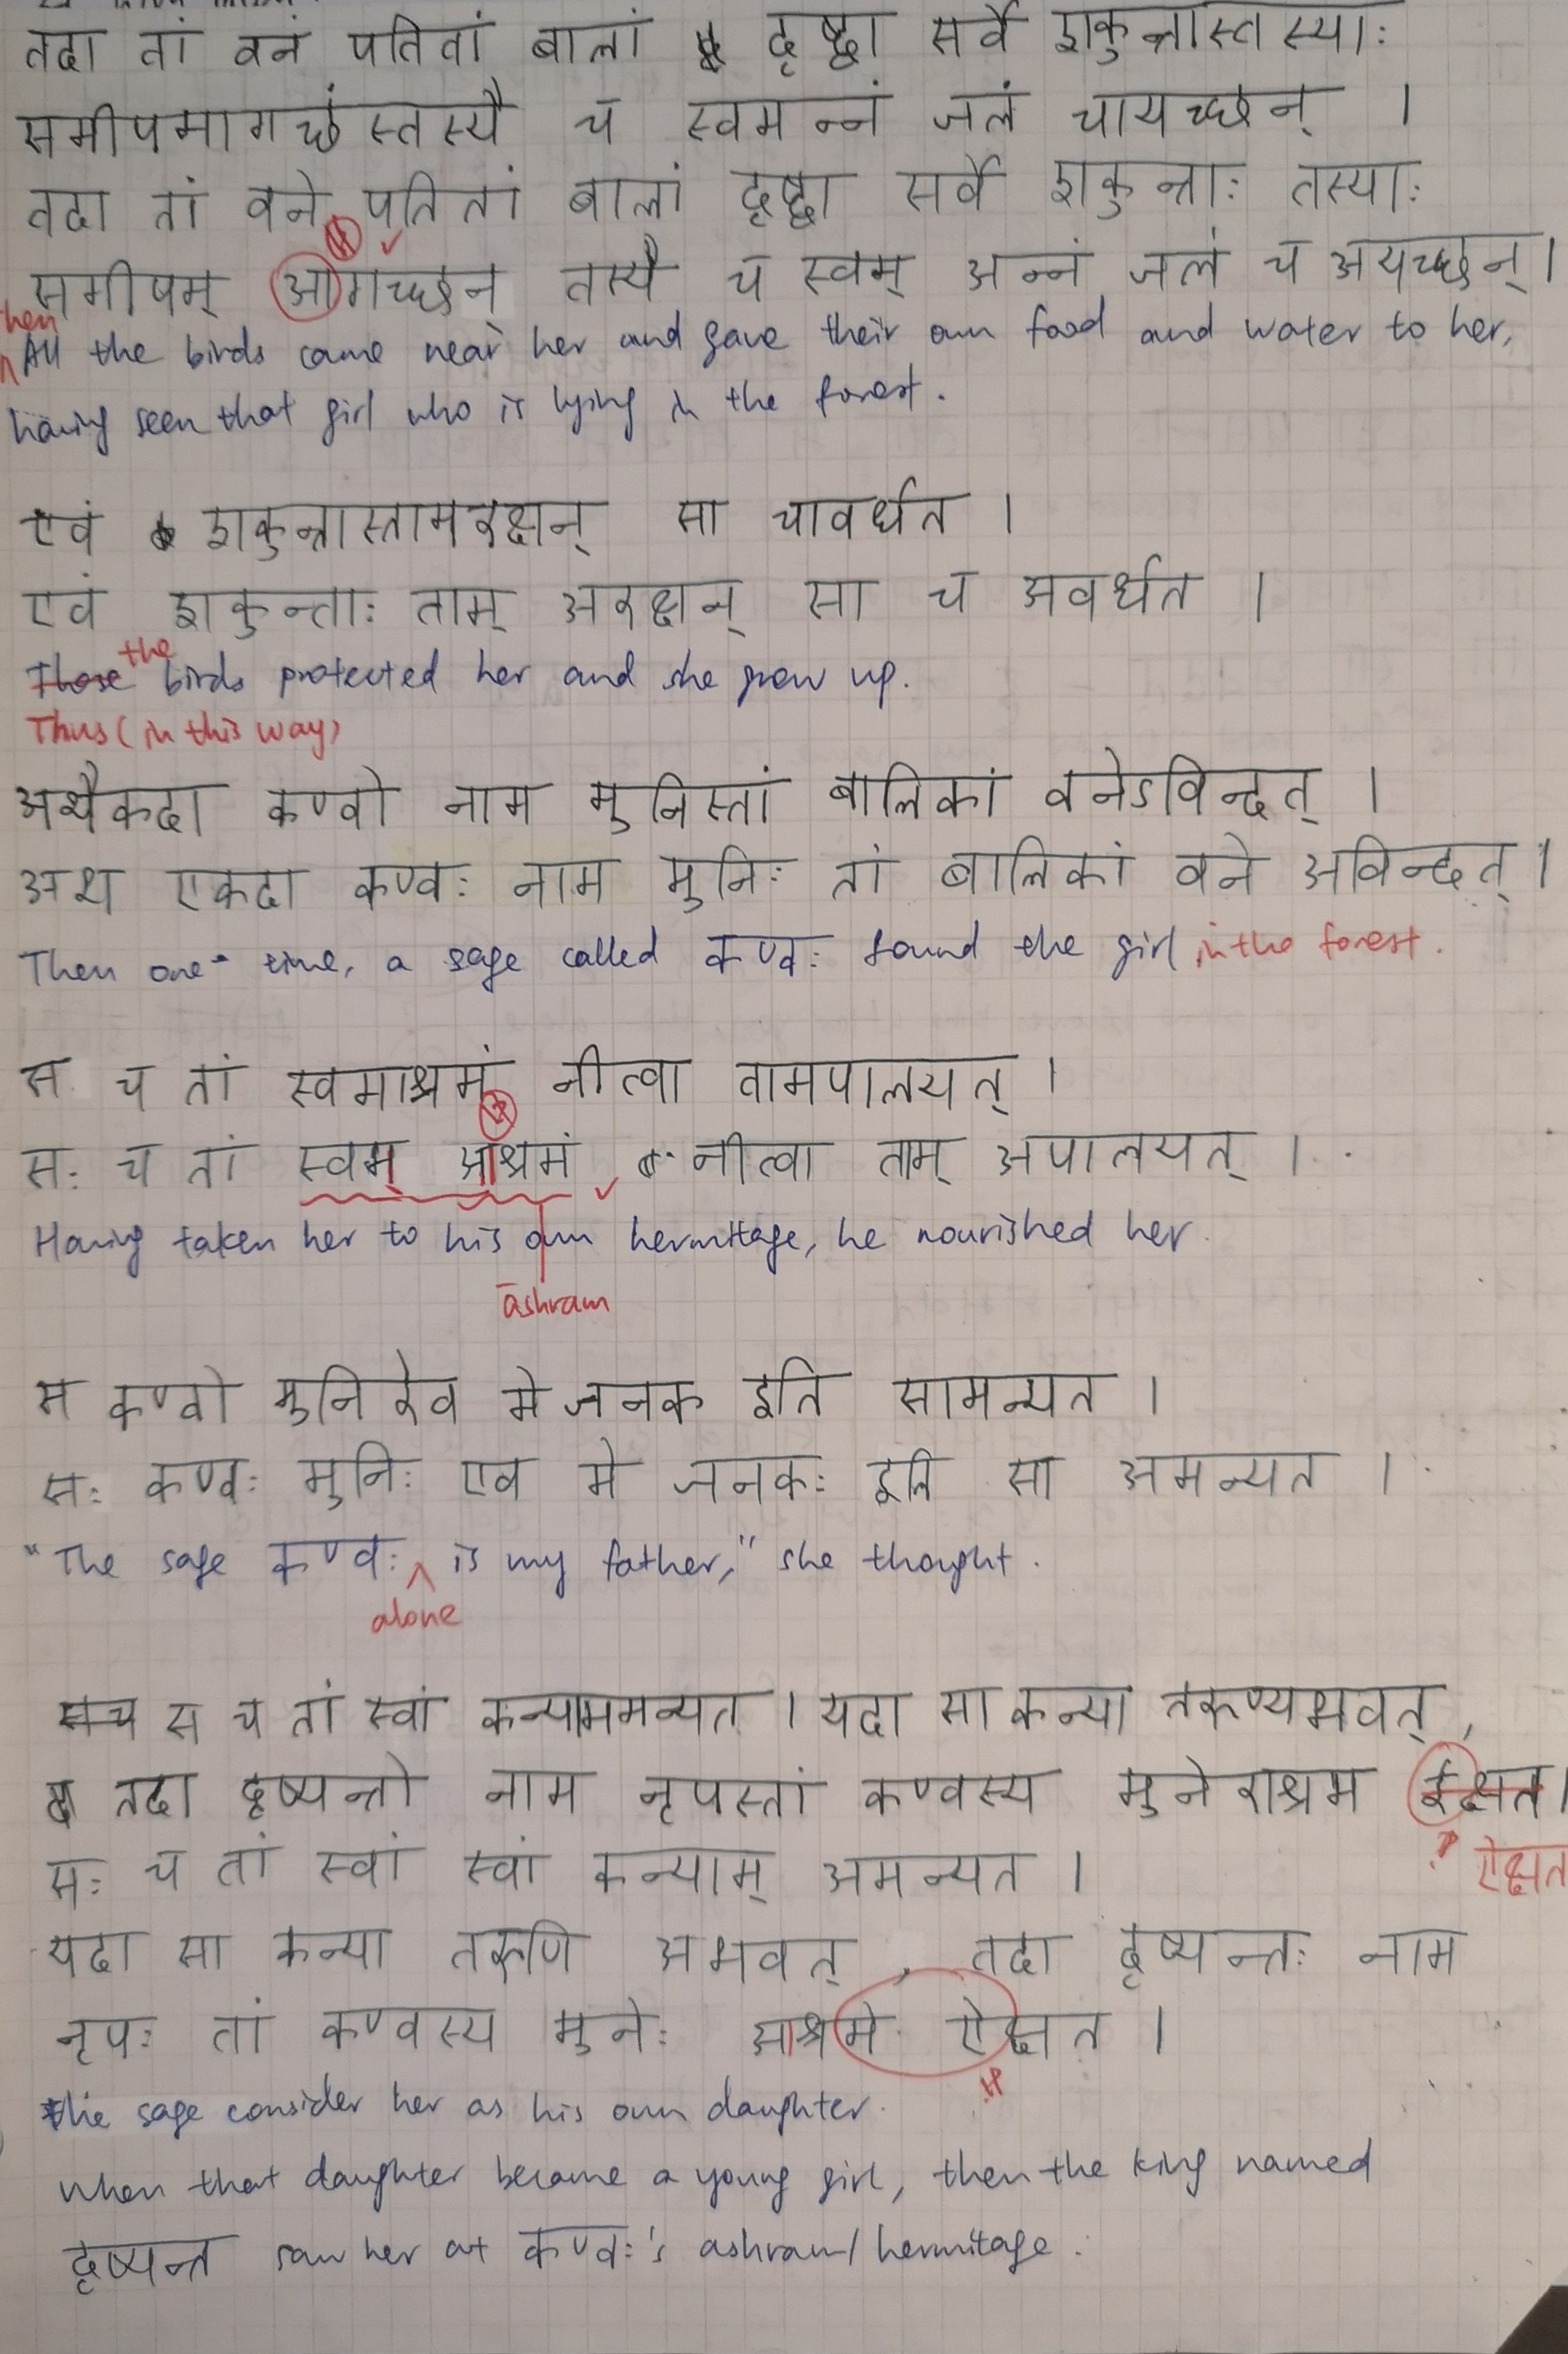 तदा तां वनं पतितां बालां दृष्ट्वा सर्वे शकुन्तास्तस्याः
समीपमागच्छंस्तस्यै च स्वमन्नं जलं चायच्छन् ।
तदा तां वने पतितां बालां दृष्ट्वा सर्वे शकुन्ताः तस्याः
समीपम् आगच्छन् तस्यै च स्वम् अन्नं जलं च अयच्छन् ।
then
All the birds came near her and gave their own food and water to her,
having seen that girl who is lying in the forest.
एवं शकुन्तास्तामरक्षन् सा चावर्धत ।
एवं शकुन्ताः ताम् अरक्षन् सा च अवर्धत ।
the
Those birds protected her and she grew up.
Thus (in this way)
अथैकदा कण्वो नाम मुनिस्तां बालिकां वनेऽविन्दत् ।
अथ एकदा कण्वः नाम मुनिः तां बालिकां वने अविन्दत् ।
Then one time, a sage called कण्वः found the girl in the forest.
स च तां स्वमाश्रमं नीत्वा तामपालयत् ।
सः च तां स्वम् आश्रमं नीत्वा ताम् अपालयत् ।
Having taken her to his own hermitage, he nourished her.
āshram
स कण्वो मुनिरेव मे जनक इति सामन्यत ।
सः कण्वः मुनिः एव मे जनकः इति सा अमन्यत ।
"The sage कण्वः is my father," she thought.
alone
सच स च तां स्वां कन्याममन्यत । यदा सा कन्या तरुण्यभवत् ,
तदा दृष्यन्तो नाम नृपस्तां कण्वस्य मुनेराश्रम ईक्षत ।
ऐक्षत
सः च तां स्वां स्वां कन्याम् अमन्यत ।
यदा सा कन्या तरुणि अभवत् , तदा दृष्यन्तः नाम
नृपः तां कण्वस्य मुनेः आश्रमे ऐक्षत ।
the sage consider her as his own daughter.
when that daughter became a young girl, then the king named
दृष्यन्त saw her at कण्वः's ashram/hermitage.